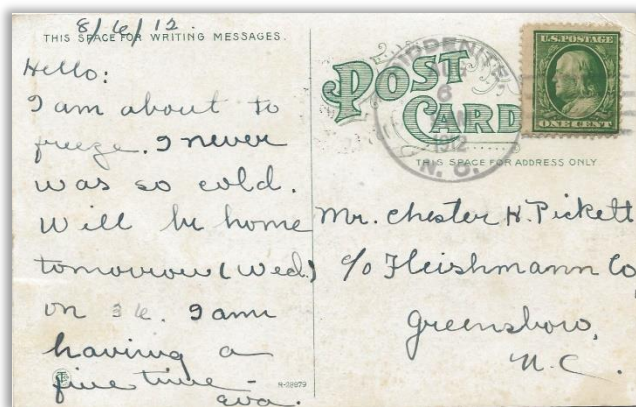 8/6/12.
THIS SPACE FOR WRITING MESSAGES.
Hello:
I am about to
freeze. I never
was so cold.
Will be home
tomorrow (Wed.)
on 36. I am
having a
fine time -
Eva.
N-28879
POST
CARD
HIDDENITE,
AUG
6
1912
N. C.
U.S. POSTAGE
ONE CENT
THIS SPACE FOR ADDRESS ONLY
Mr. Chester H. Pickett
c/o Fleishmann Co
Greensboro,
N.C.